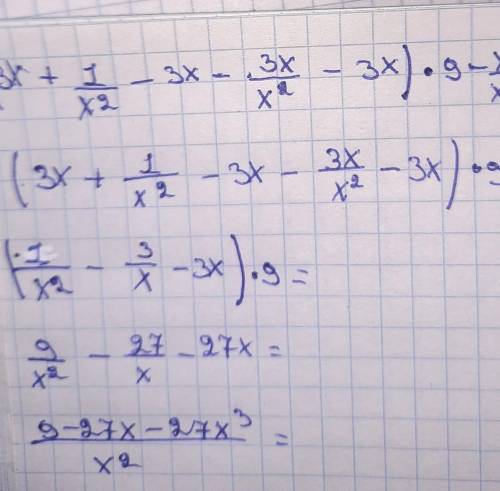 3x + 1/x² - 3x - 3x/x² - 3x) · 9 -
(3x + 1/x² - 3x - 3x/x² - 3x) · 9
(1/x² - 3/x - 3x) · 9 =
9/x² - 27/x - 27x =
(9 - 27x - 27x³)/x² =